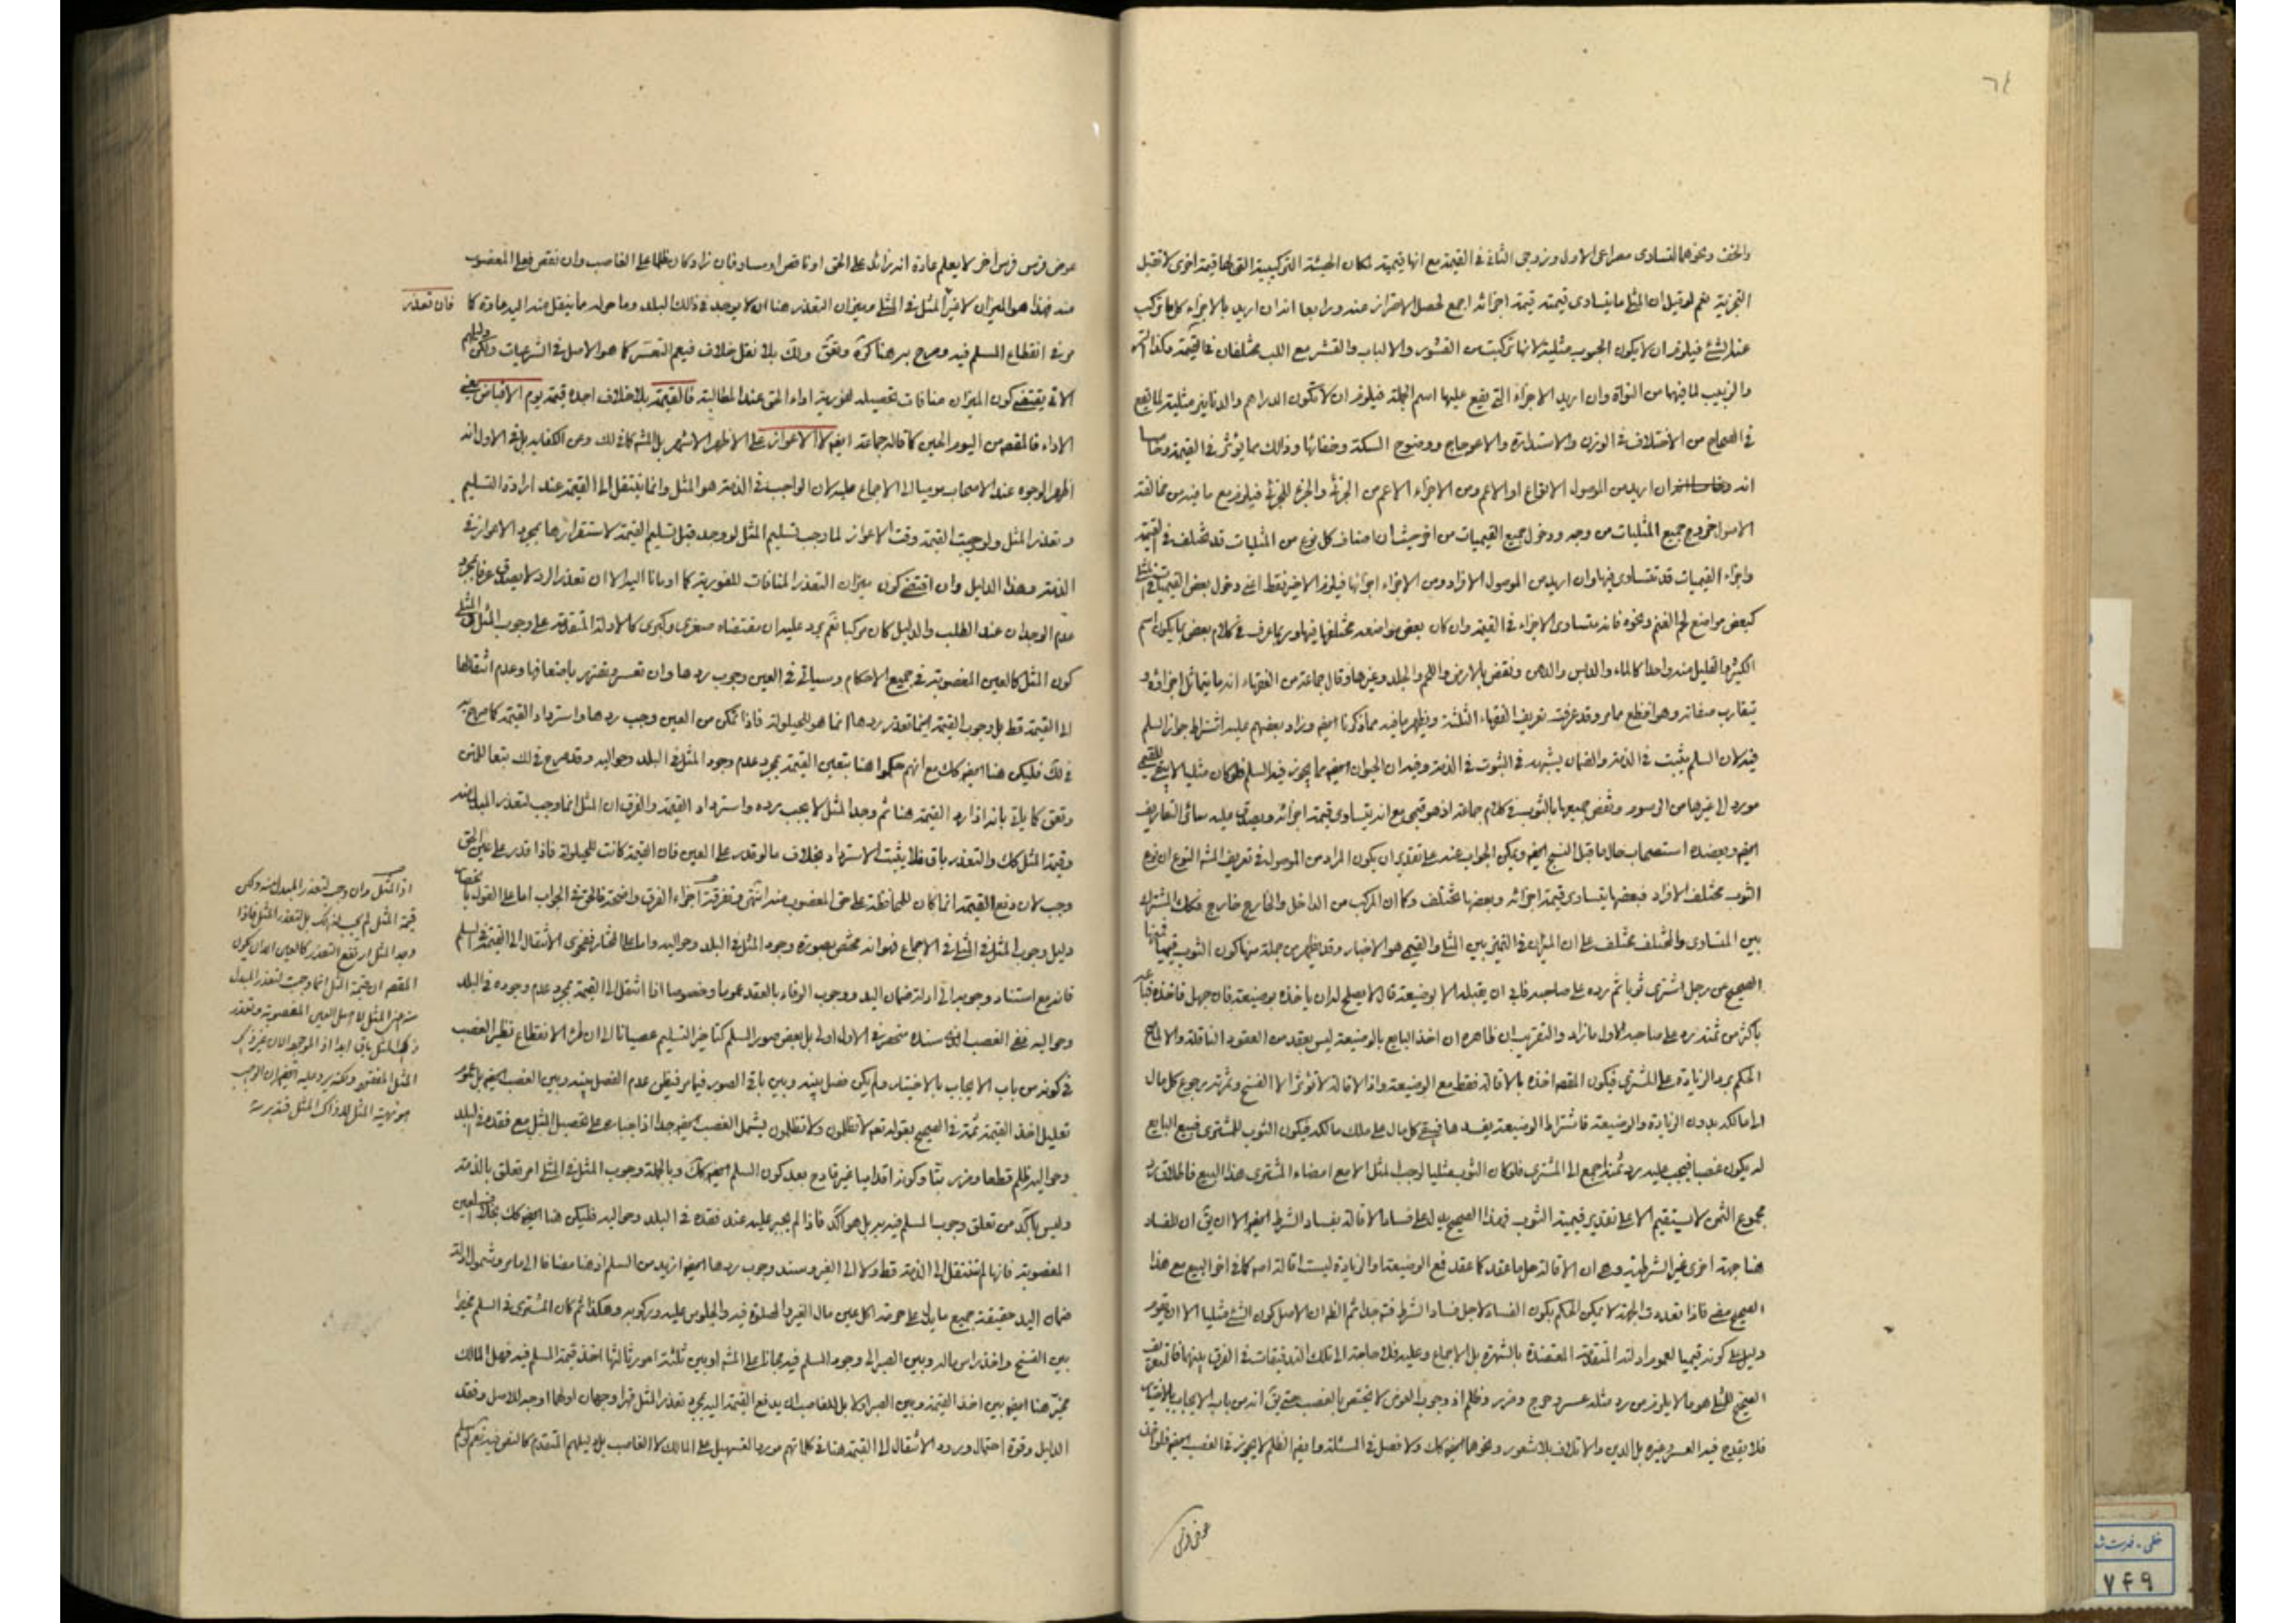 ٦٤
والخف ونحوهما لتساوى مصراعى الاول وزوجى الثانى فى القيمة مع انها قيمية لمكان الهيئة التركيبية التى لها قيمة اخرى لا تقبل
التجزية نعم لو قيل ان المثلى ما يتساوى قيمته قيمة اجزائه اجمع لحصل الاحتراز عنه ورابعا انه ان اريد بالاجزاء كل ما تركب
عنه الشئ فيلزم ان لا يكون الحبوب مثلية لانها تركبت من القشور والالباب والقشر مع اللب مختلفان فى القيمة وكذا التمر
والزبيب لما فيهما من النواة وان اريد الاجزاء التى يقع عليها اسم الجملة فيلزم ان لا تكون الدراهم والدنانير مثلية لما يقع
فى الصحاح من الاختلاف فى الوزن والاستدارة والاعوجاج ووضوح السكة وخفائها وذلك مما يؤثر فى القيمة وخامسا
انه ان اريد من الموصول الانواع او الاعم ومن الاجزاء الاعم من الجزئى والجزء للجزئى فيلزم مع ما فيه من مخالفة
الاصول خروج جميع المثليات من وجه ودخول جميع القيميات من اخر حيث ان اصناف كل نوع من المثليات قد تختلف فى القيمة
واجزاء القيميات قد تتساوى فيها وان اريد من الموصول الافراد ومن الاجزاء اجزائها فيلزم الاخير فقط اعنى دخول بعض القيميات فى المثلى
كبعض مواضع لحم الغنم ونحوه فانه متساوى الاجزاء فى القيمة وان كان بعض مواضعه مختلفا فيها وربما عرف فى كلام بعض بما يكون اسم
الكثير والقليل منه واحدا كالماء والدبس والدهن ونقض بالارض واللحم والجلد وغيرها وقال جماعة من الفقهاء انه ما يتماثل اجزاؤه و
يتقارب صفاته وهو افظع مما مر وقد عرفت تعريف الفقهاء الثلثة ويظهر ما فيه مما ذكرنا ايضا وزاد بعضهم عليه اشتراط جواز السلم
فيه لان السلم يثبت فى الذمة والضمان يشبهه فى الثبوت فى الذمة وفيه ان الحيوان ايضا مما يجوز فيه السلم
ونقض جميعها بالثوب فى كلام جماعة اذ هو قيمى مع انه يتساوى قيمة اجزائه ويصدق عليه سائر التعاريف
ايضا ويعضده استصحاب حال ما قبل النسج ايضا ويمكن الجواب عنه على تقدير ان يكون المراد من الموصول فى تعريف المشهور النوع ان نوع
الثوب مختلف الافراد فبعضها يتساوى قيمة اجزائه وبعضها مختلف وكما ان المركب من الداخل والخارج خارج فكذلك المشترك
بين المتساوى والمختلف مختلف على ان الميزان فى التميز بين المثلى والقيمى هو الاخبار وقد يظهر من جملة منها كون الثوب قيميا ففيها
الصحيح من رجل اشترى ثوبا ثم رده على صاحبه فابى ان يقبله الا بوضيعة قال لا يصلح له ان ياخذه بوضيعة فان جهل فاخذه فباعه
باكثر من ثمنه رد على صاحبه الاول ما زاد والتقريب ان ظاهره ان اخذ البايع بالوضيعة ليس بعقد من العقود الناقلة والا لما صح
الحكم برد الزيادة على المشترى فيكون المقصود اخذه بالاقالة فقط مع الوضيعة واذ الاقالة لا تؤثر الا الفسخ وثمرته رجوع كل مال
الى مالكه بدون الزيادة والوضيعة فاشتراط الوضيعة يفسدها فيبقى كل مال على ملك مالكه فيكون الثوب للمشترى فبيع البايع
له يكون غصبا فيجب عليه رد ثمنه اجمع الى المشترى فلو كان الثوب مثليا لوجب المثل الا مع امضاء المشترى هذا البيع فاطلاق رد
مجموع الثمن لا يستقيم الا على تقدير قيمية الثوب فهذا الصحيح يدل على فساد الاقالة بفساد الشرط ايضا الا ان يق ان للفساد
هنا جهة اخرى غير الشرطية وهى ان الاقالة حل ما عقد كما عقد فمع الوضيعة او الزيادة ليست اقالة
الصحيح فاذا تعددت الجهة لا يمكن الحكم بكون الفساد لاجل فساد الشرط فتامل جدا ثم الظاهر ان الاصل كون الشئ مثليا الا ان يقوم
دليل على كونه قيميا لعموم ادلته المتقدمة المعتضدة بالشهرة بل الاجماع وعليه فلا حاجة الى تلك التدقيقات فى الفرق بينهما فالتعريف
الصحيح للمثلى هو ما لا يلزم من رد مثله عسر وحرج وضرر وظلم اذ وجوب العوض لا يختص بالغصب حتى يق انه من باب الايجاب بالاختيار
فلا يقدح فيه العسر وغيره بل الدين والاتلاف بلا شعور ونحوهما ايضا كك ولا فصل فى المسئلة وايضا الظلم لا يجوز فى الغصب ايضا فلو اخذ
عوض فرس
عوض فرس فرس اخر لا يعلم عادة انه زائد على الحق او ناقص او مساو فان زاد كان ظلما على الغاصب وان نقص فعلى المغصوب
منه فهذا هو الميزان لا غير المثل فى المثلى وميزان التعذر هنا ان لا يوجد فى ذلك البلد وما حوله ما ينقل منه اليه عادة كما
فان تعذر
مر فى انقطاع المسلم فيه وصرح به هنا كره وفق ولك بلا نقل خلاف فيعم التعسر كما هو الاصل فى الشرعيات ولكن دليلهم
الاتى يقتضى كون الميزان منافات تحصيله لفورية اداء الحق عند المطالبة فالقيمة بلا خلاف اجده قيمة يوم الاقباض يعنى
الاداء فالمقصود من اليوم الحين كما قاله جماعة ايضا لا الاعواز على الاظهر الاشهر بل المشهور كما فى لك وعن الكفاية بل فى الاول انه
اظهر الوجوه عند الاصحاب موميا الى الاجماع عليه لان الواجب فى الذمة هو المثل وانما ينتقل الى القيمة عند ارادة التسليم
وتعذر المثل ولو وجبت القيمة وقت الاعواز لما وجب تسليم المثل لو وجد قبل تسليم القيمة لاستقرارها بمجرد الاعواز فى
الذمة وهذا الدليل وان اقتضى كون ميزان التعذر المنافات للفورية كما اومانا اليه الا ان تعذر الرد لا يصدق عرفا بمجرد
عدم الوجدان عند الطلب والدليل كان مركبا ثم يرد عليه ان مقتضاه صغرى وكبرى كالادلة المتقدمة على وجوب المثل فى المثلى
كون المثل كالعين المغصوبة فى جميع الاحكام وسياتى فى العين وجوب ردها وان تعسر وتضرر باضعافها وعدم انتقالها
الى القيمة قط بل وجوب القيمة اينما تعذر ردها انما هو للحيلولة فاذا تمكن من العين وجب ردها واسترداد القيمة كما صرح به
فى لك فليكن هنا ايضا كك مع انهم حكموا هنا بتعين القيمة بمجرد عدم وجود المثل فى البلد وحواليه وقد صرح فى لك تبعا
وفق كما ياتى بانه اذا رد القيمة هنا ثم وجد المثل لا يجب رده واسترداد القيمة والفرق ان المثل انما وجب لتعذر المبدل منه
وقيمة المثل كك والتعذر باق فلا يثبت الاسترداد بخلاف ما لو قدر على العين فان القيمة كانت للحيلولة فاذا قدر على عين الحق
وجب لان دفع القيمة انما كان للمحافظة على حق المغصوب منه انتهى وتفرقة اجزاء الفرق واضحة فالحق فى الجواب اما على القول بانحصار
دليل وجوب المثل فى المثلى فى الاجماع فهو انه مختص بصورة وجود المثل فى البلد وحواليه واما على المختار فبفحوى الانتقال الى القيمة فى السلم
فانه مع استناد وجوبه الى ادلة ضمان اليد ووجوب الوفاء بالعقد عموما وخصوصا اذا انتقل الى القيمة بمجرد عدم وجوده فى البلد
وحواليه ففى الغصب الذى سنده منحصر فى الاول اولى بل بعض صور السلم كتاخير التسليم عصيانا الى ان طرء الانقطاع نظير الغصب
فى كونه من باب الايجاب بالاختيار ولم يكن فصل بينه وبين باقى الصور فيما مر فيظن عدم الفصل بينه وبين الغصب ايضا بل عموم
تعليل اخذ القيمة ثمة فى الصحيح بقوله تعم لا تظلمون ولا تظلمون يشمل الغصب ايضا جدا اذ اجباره على تحصيل المثل مع فقده فى البلد
وحواليه ظلم قطعا وضرر بتا وكونه اقداميا غير قادح بعد كون السلم ايضا كك وبالجملة وجوب المثل فى المثلى امر تعلق بالذمة
وليس باكد من تعلق وجوب المسلم فيه به بل هو اكد فاذا لم يجبر عليه عند فقده فى البلد وحواليه فليكن هنا ايضا كك بخلاف نفس العين
المغصوبة فانها لم تنتقل الى الذمة قط ولا الى الغير وسند وجوب ردها ايضا ازيد من السلم اذ هنا مضافا الى ما مر وشمول ادلة
ضمان اليد حقيقة جميع ما يدل على حرمة اكل عين مال الغير والصلوة فيه والجلوس عليه وركوبه وهكذا ثم كان المشترى فى السلم مخيرا
بين الفسخ واخذ راس ماله وبين الصبر الى وجود المسلم فيه مجانا على المشهور او بين ثلثة امور ثالثها اخذ قيمة المسلم فيه فهل المالك
مخير هنا ايضا بين اخذ القيمة وبين الصبر او لا بل للغاصب ان يدفع القيمة اليه بمجرد تعذر المثل قهرا وجهان اولهما اوجه للاصل وفقد
الدليل وقوة احتمال ورود الانتقال الى القيمة هنا فى كلماتهم مورد التسهيل على المالك لا الغاصب بل دليلهم المتقدم كالنص فيه نعم
اذ المثل وان وجب لتعذر المبدل منه ولكن
قيمة المثل لم يجب لذلك بل لتعذر المثل فاذا
وجد المثل ارتفع التعذر كالعين الا ان يكون
المقصود ان قيمة المثل انما وجبت لتعذر المبدل
منه المثل لا اصل العين المغصوبة وتعذر
ذلك المثل باق ابدا اذ الموجود الان غير ذلك
المثل المفقود ولكنه يرد عليه ايضا ان الواجب
هو نوعية المثل لا ذاك المثل فتدبر منه
خطى - فهرست شده
٧٤٩